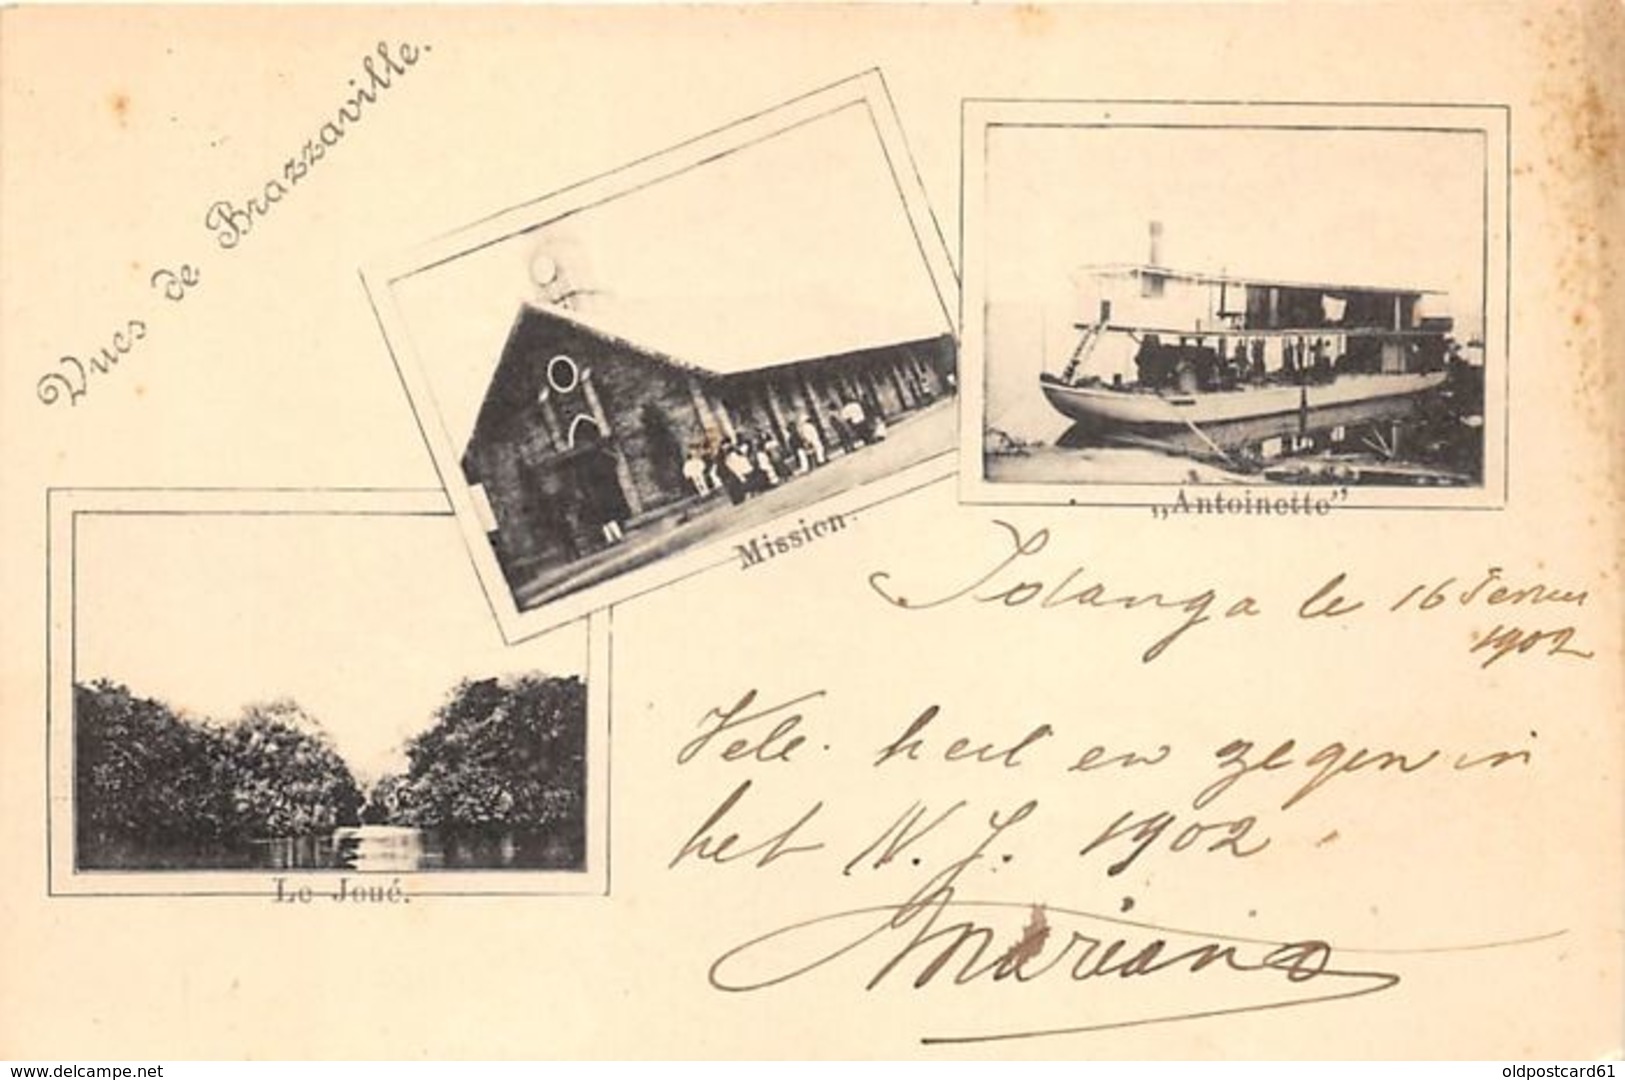 Vues de Brazzaville.
Mission.
„Antoinette”
Le Joué.
le 16
1902
Vele heil en zegen in
het N. J. 1902
website: delcampe.net
oldpostcard61